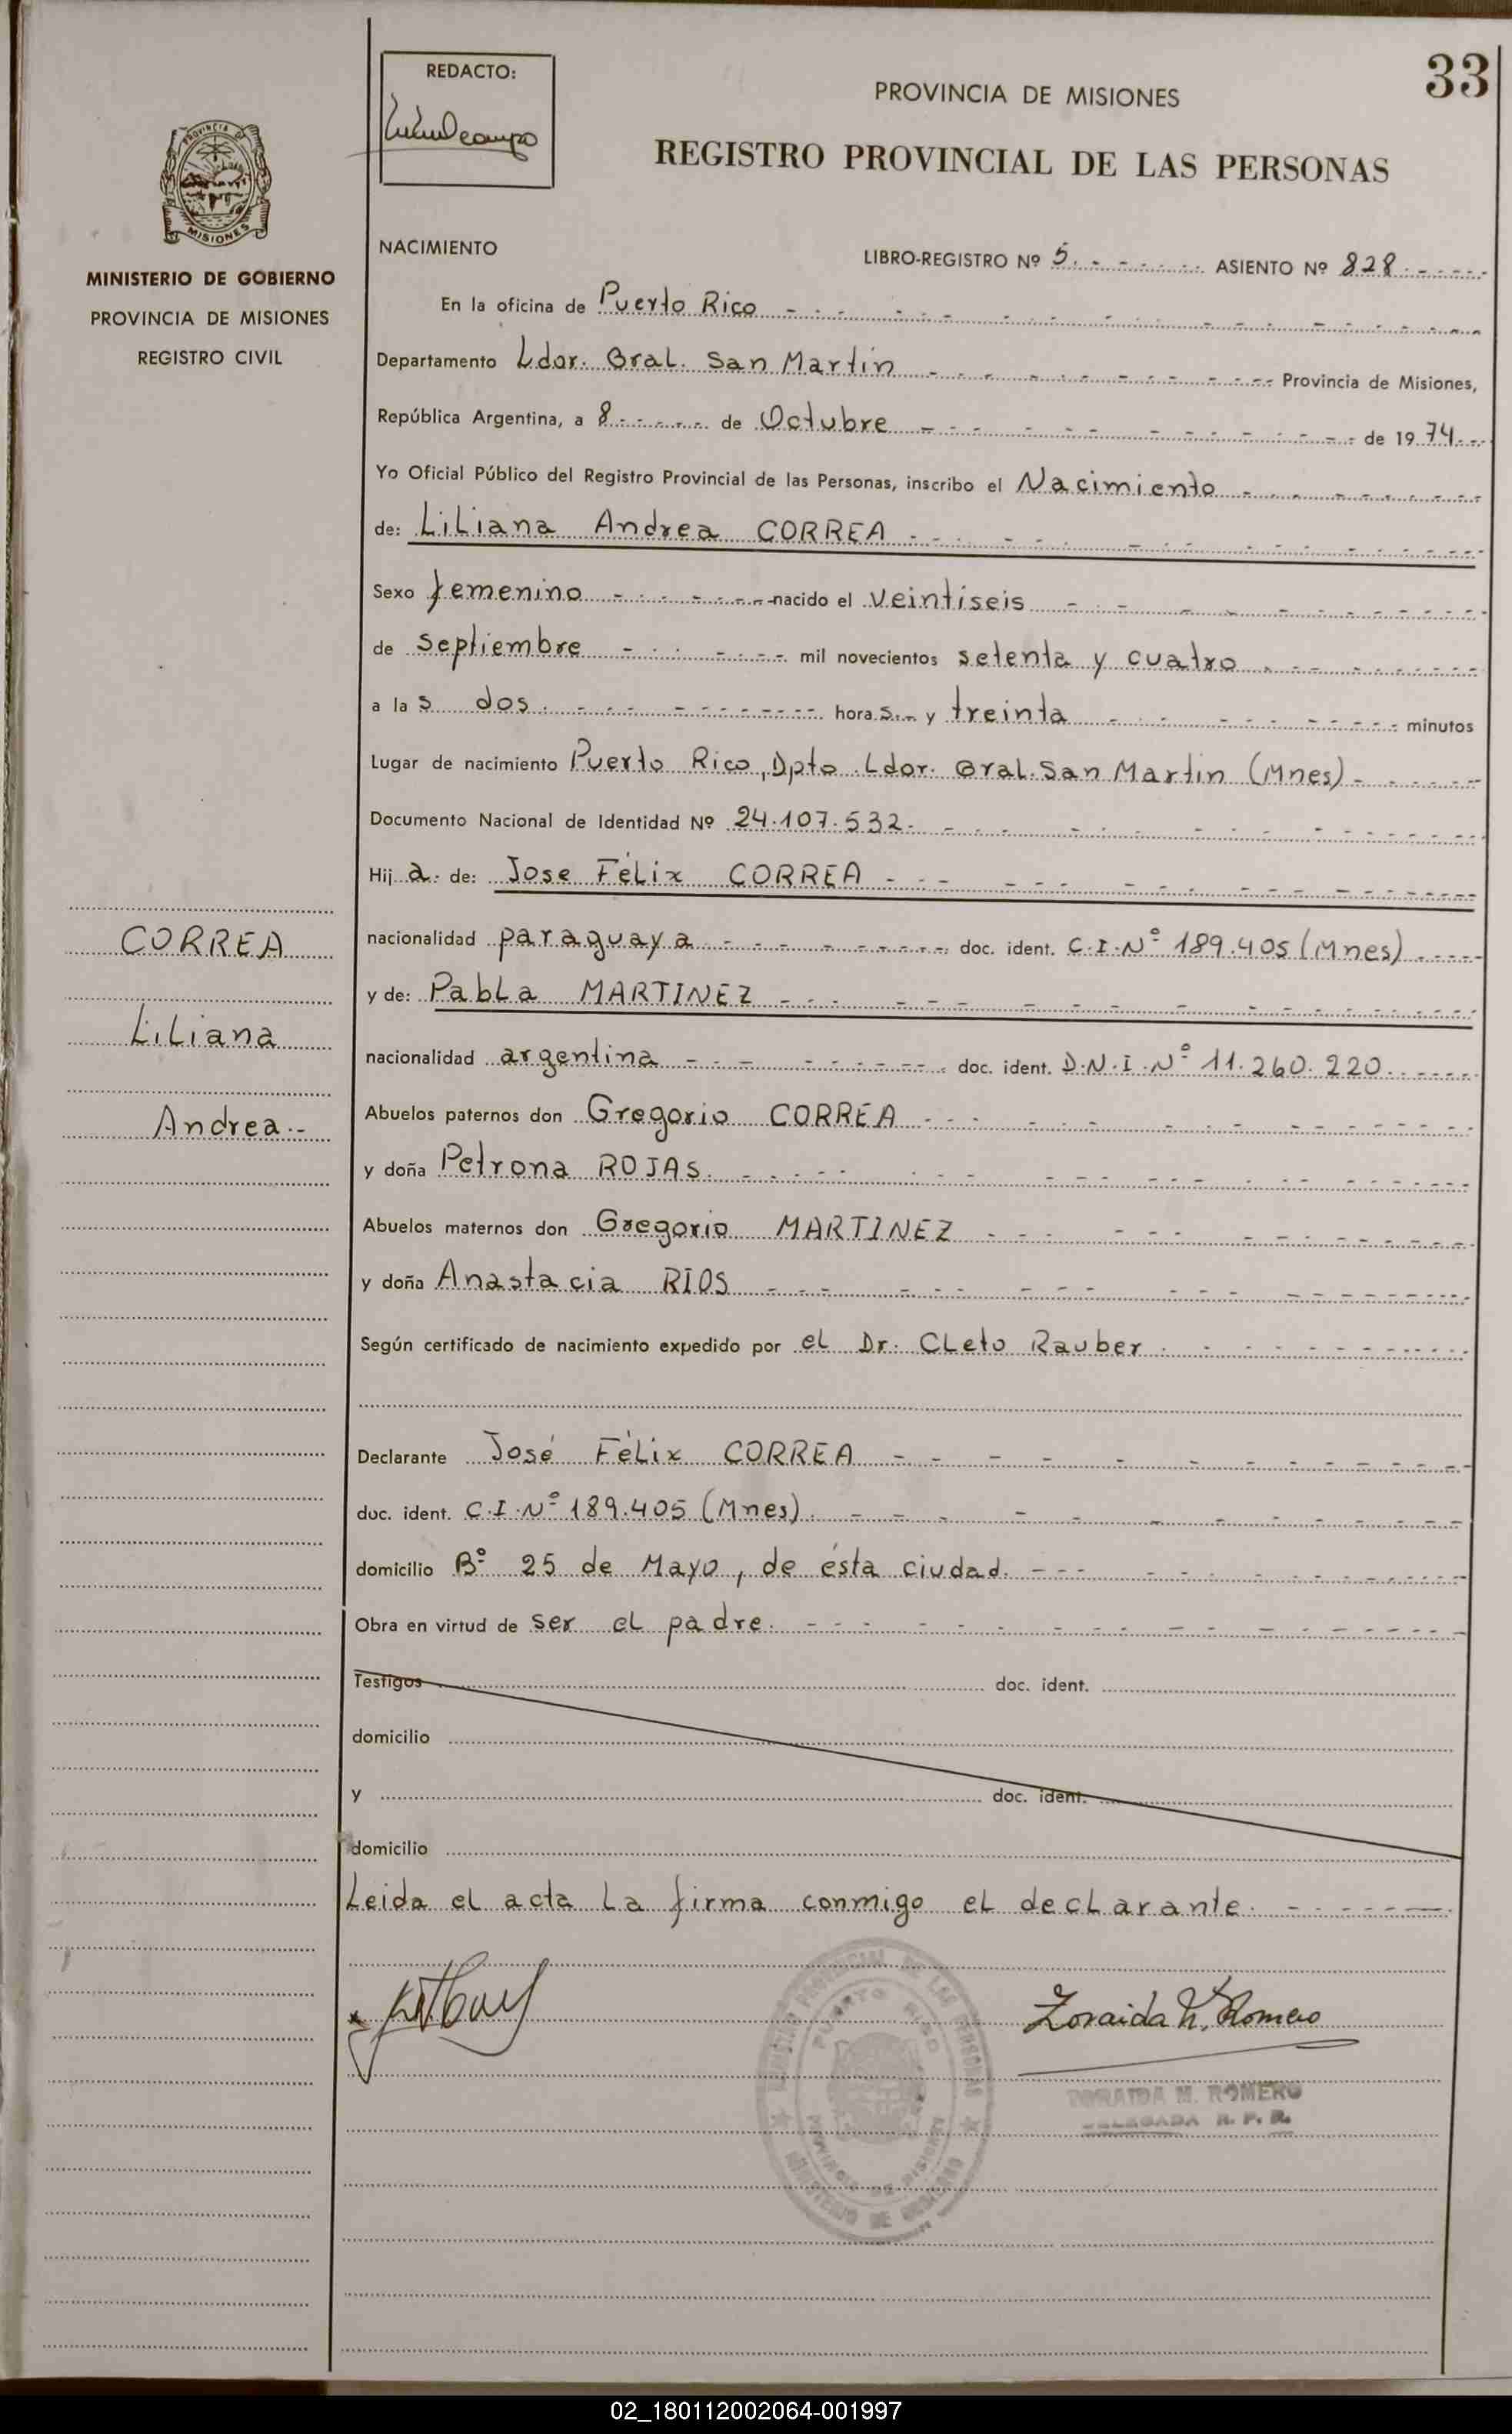 33
REDACTO:
PROVINCIA DE MISIONES
REGISTRO PROVINCIAL DE LAS PERSONAS
PROVINCIA DE
MISIONES
MINISTERIO DE GOBIERNO
PROVINCIA DE MISIONES
REGISTRO CIVIL
NACIMIENTO
LIBRO-REGISTRO Nº 5. ASIENTO Nº 828
En la oficina de Puerto Rico
Departamento Ldor. Gral. San Martín Provincia de Misiones,
República Argentina, a 8 de Octubre de 19 74
Yo Oficial Público del Registro Provincial de las Personas, inscribo el Nacimiento
de: Liliana Andrea CORREA
Sexo femenino nacido el veintiseis
de septiembre mil novecientos setenta y cuatro
a la s dos hora s y treinta minutos
Lugar de nacimiento Puerto Rico, Dpto Ldor. Gral. San Martin (Mnes)
Documento Nacional de Identidad Nº 24.107.532
Hij a de: Jose Félix CORREA
nacionalidad paraguaya doc. ident. C.I.Nº 189.405 (Mnes)
y de: Pabla MARTINEZ
nacionalidad argentina doc. ident. D.N.I.Nº 11.260.220
Abuelos paternos don Gregorio CORREA
y doña Petrona ROJAS.
Abuelos maternos don Gregorio MARTINEZ
y doña Anastacia RIOS
Según certificado de nacimiento expedido por el Dr. Cleto Rauber
Declarante José Félix CORREA
doc. ident. C.I.Nº 189.405 (Mnes)
domicilio Bº 25 de Mayo, de ésta ciudad.
Obra en virtud de ser el padre.
Testigos doc. ident.
domicilio
y doc. ident.
domicilio
Leida el acta la firma conmigo el declarante.
CORREA
Liliana
Andrea
Zoraida M. Romero
ZORAIDA M. ROMERO
DELEGADA R. P. R.
REGISTRO PROVINCIAL DE LAS PERSONAS
PUERTO RICO
PROVINCIA DE MISIONES
MINISTERIO DE GOBIERNO
02_180112002064-001997